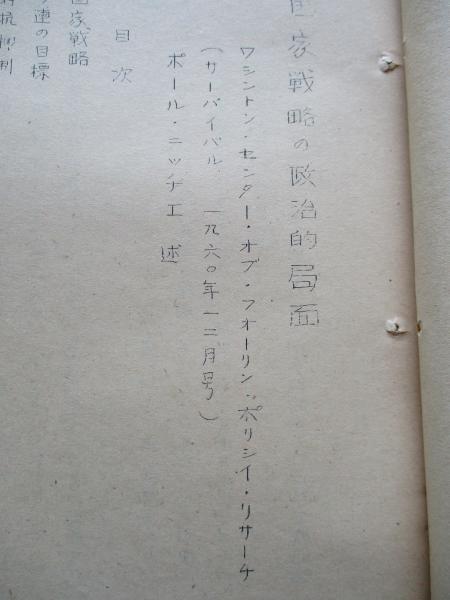 国家戦略の政治的局面
ワシントン・センター・オブ・フォーリン・ポリシイ・リサーチ
(サーバイバル 一九六〇年一二月号)
ポール・ニッチエ 述
目次
国家戦略
ソ連の目標